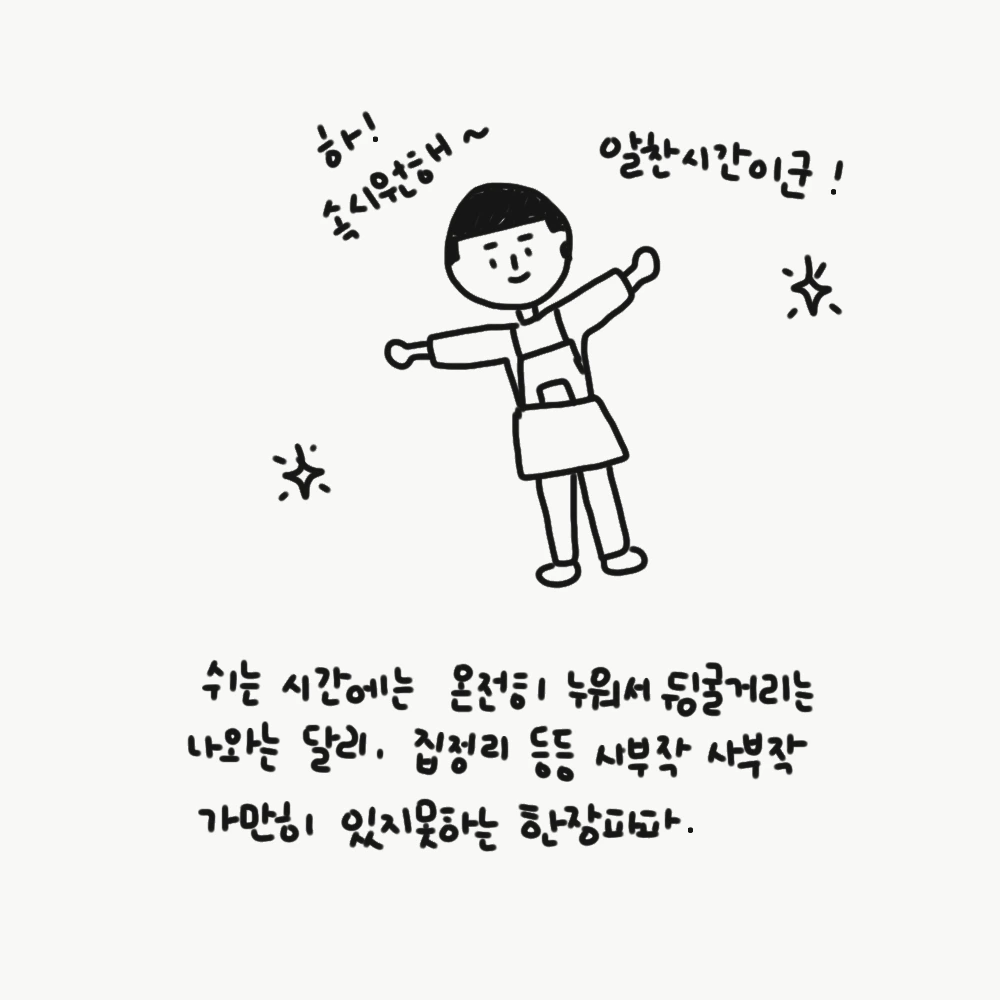 하!
속시원해~
알찬시간이군!
쉬는 시간에는 온전히 누워서 뒹굴거리는
나와는 달리, 집정리 등등 사부작 사부작
가만히 있지못하는 한장파파.